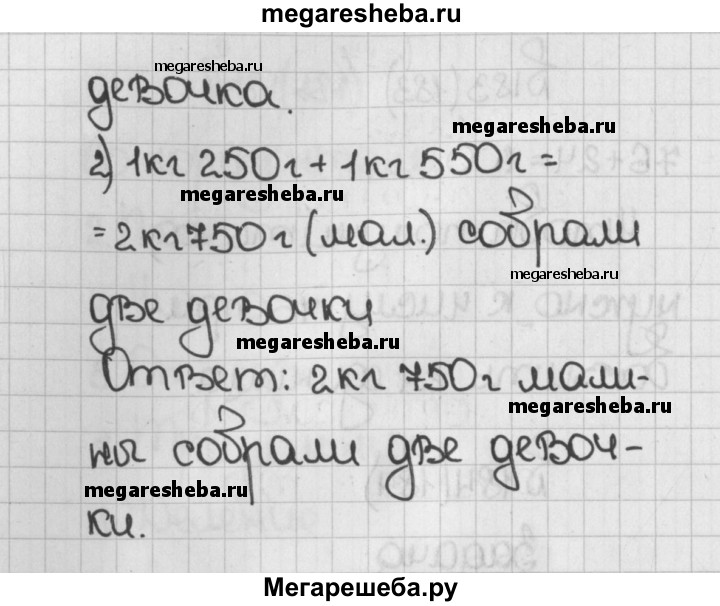 megaresheba.ru
megaresheba.ru
девочка.
megaresheba.ru
2) 1кг 250г + 1кг 550г =
megaresheba.ru
= 2кг 750г (мал.) собрали
megaresheba.ru
две девочки
megaresheba.ru
Ответ: 2кг 750г мали-
megaresheba.ru
ны собрали две девоч-
megaresheba.ru
ки.
Мегарешеба.ру